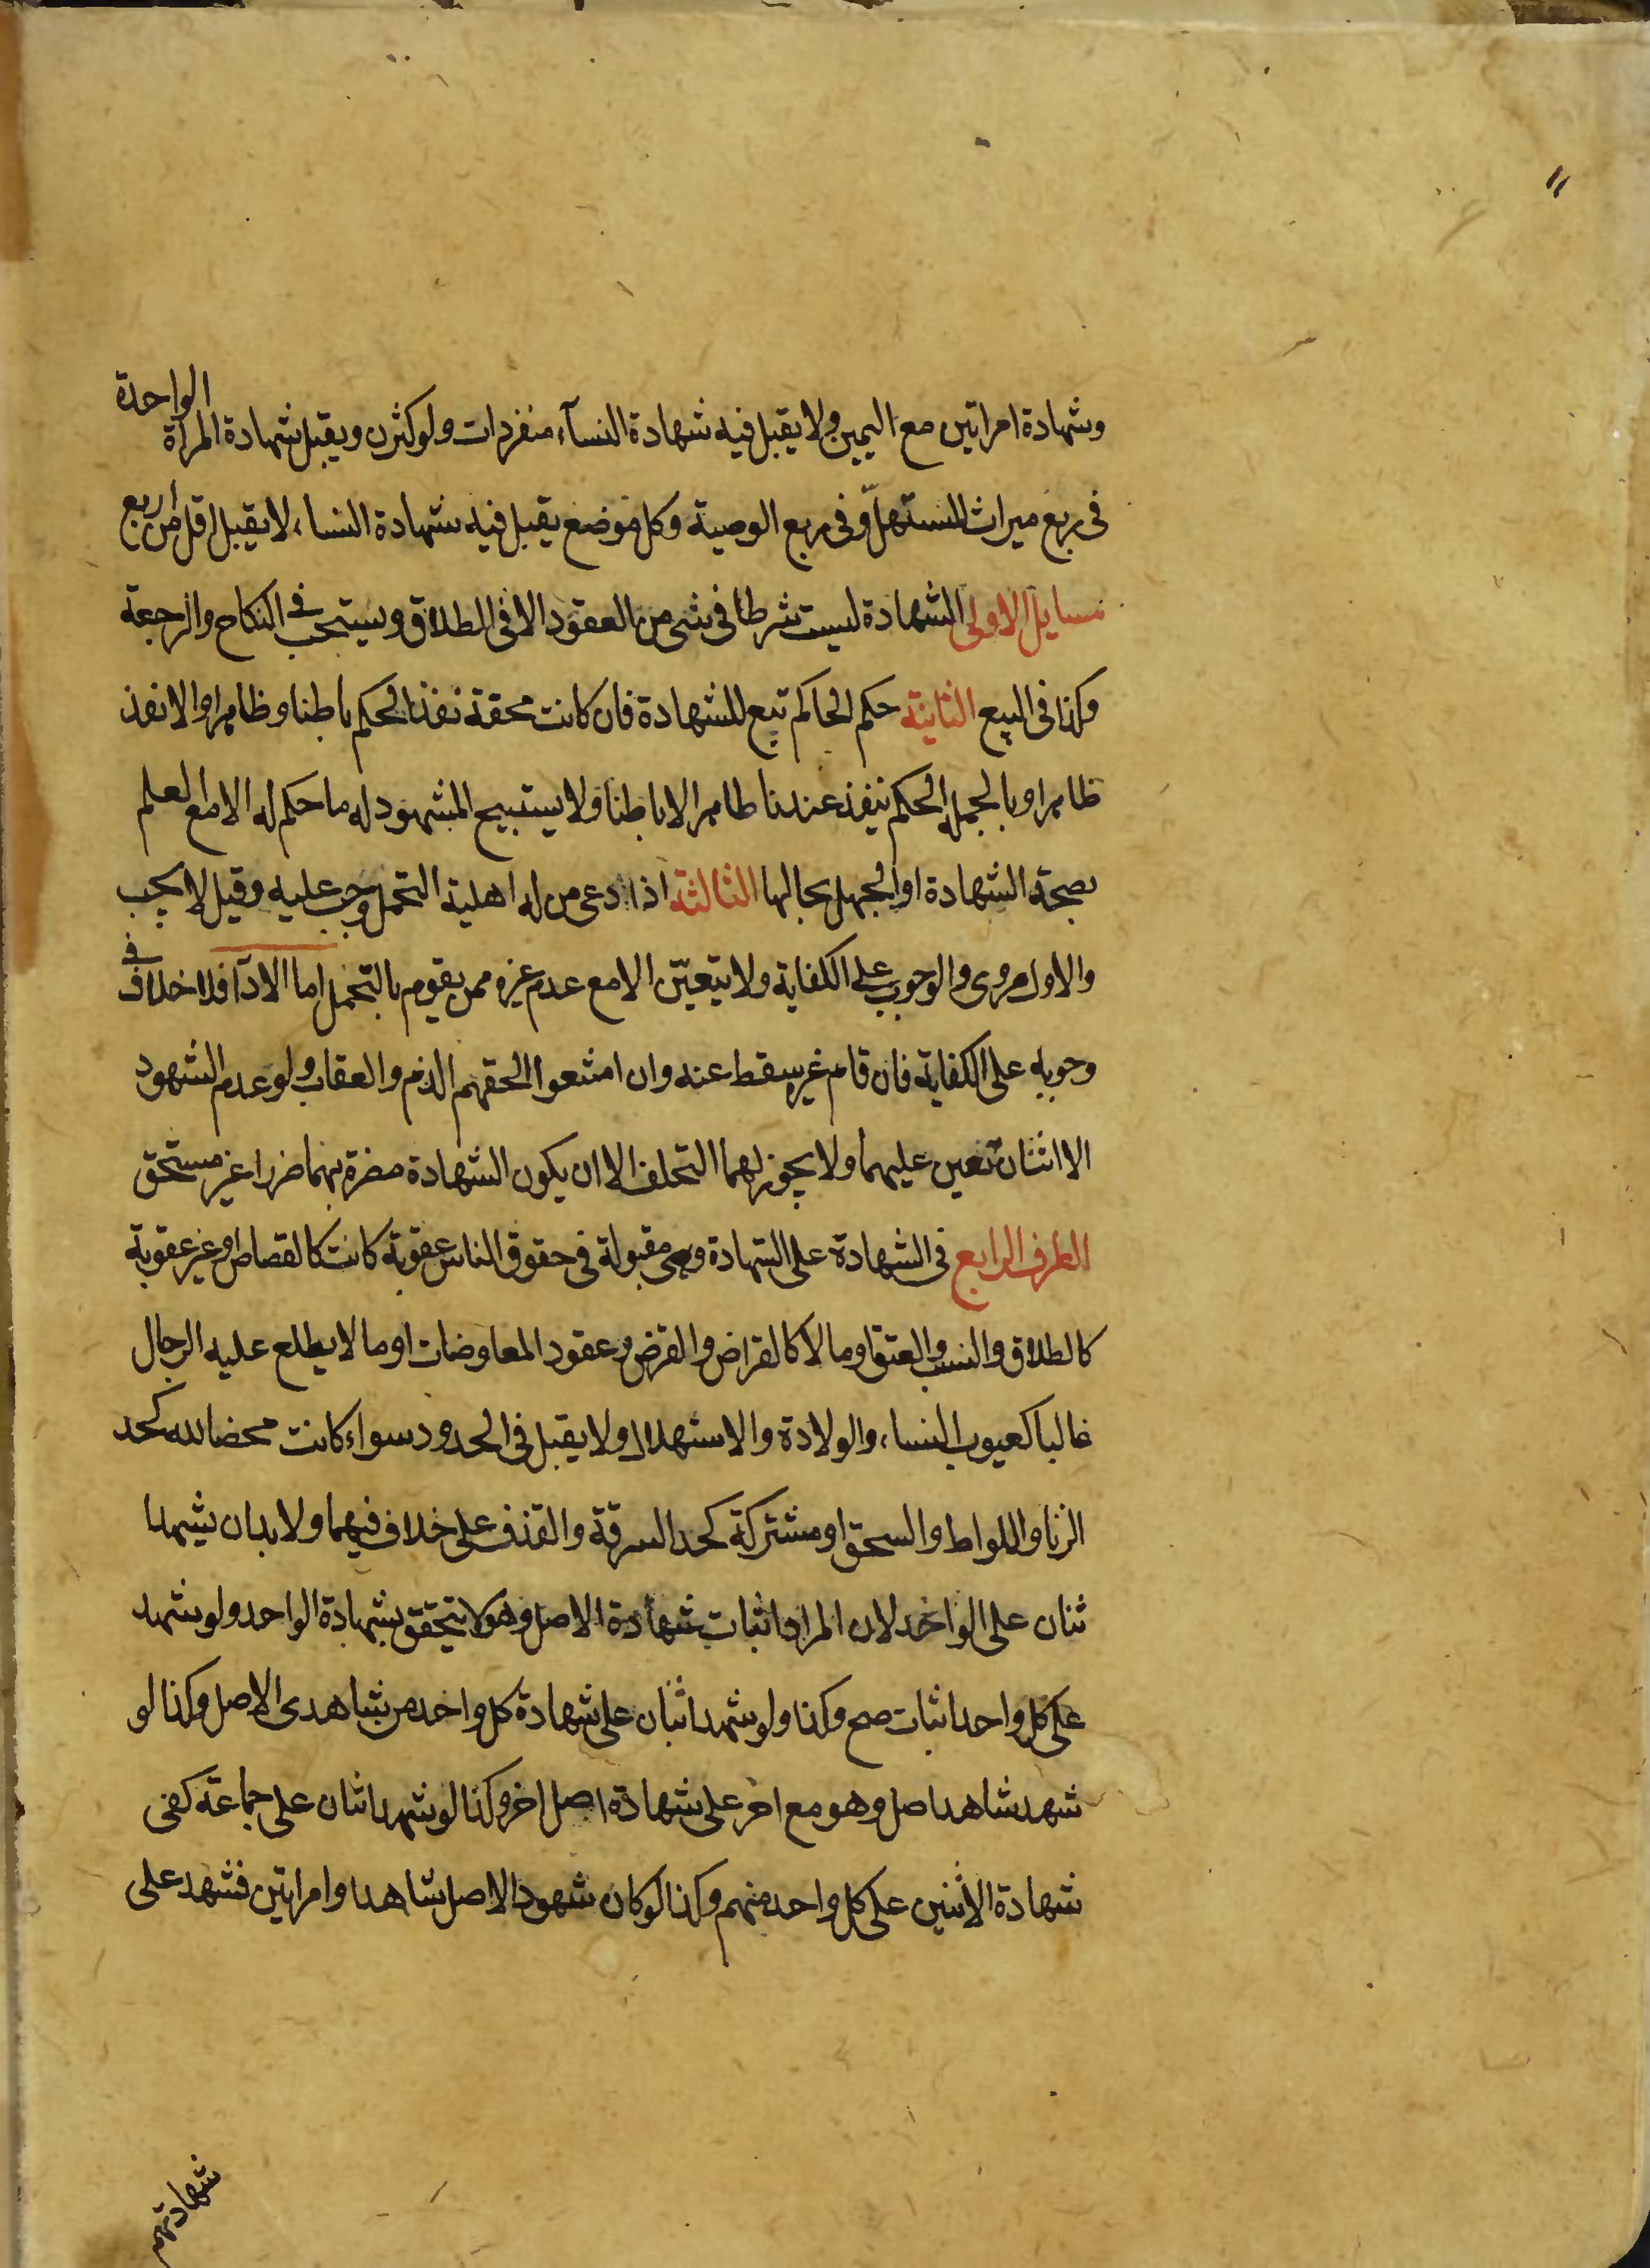 وشهادة امراتين مع اليمين ولا يقبل فيه شهادة النسآء منفردات ولو كثرن ويقبل شهادة المرأة الواحدة
فى ربع ميراث المستهلّ وفى ربع الوصية وكل موضع يقبل فيه شهادة النساء لا يقبل اقل من اربع
مسايل الاولى الشهادة ليست شرطا فى شى من العقود الا فى الطلاق ويستحب فى النكاح والرجعة
وكذا فى البيع الثانية حكم الحاكم تبع للشهادة فان كانت محقة نفذ الحكم باطنا وظاهرا والا نفذ
ظاهرا وبالجملة الحكم ينفذ عندنا ظاهرا لا باطنا ولا يستبيح المشهود له ما حكم له الا مع العلم
بصحة الشهادة او الجهل بحالها الثالثة اذا دعى من له اهلية التحمل وجب عليه وقيل لا يجب
والاول مروى والوجوب على الكفاية ولا يتعيّن الا مع عدم غيره ممن يقوم بالتحمل اما الادآ فلا خلاف فى
وجوبه على الكفاية فان قام غيره سقط عنه وان امتنعوا لحقهم الذم والعقاب ولو عدم الشهود
الا اثنان تعين عليهما ولا يجوز لهما التخلف الا ان يكون الشهادة مضرة بهما ضررا غير مستحق
الطرف الرابع فى الشهادة على الشهادة وهى مقبولة فى حقوق الناس عقوبة كانت كالقصاص او غير عقوبة
كالطلاق والنسب والعتق او مالا كالقراض والقرض وعقود المعاوضات او ما لا يطلع عليه الرجال
غالبا كعيوب النساء والولادة والاستهلال ولا يقبل فى الحدود سواء كانت محضا لله كحد
الزنا واللواط والسحق او مشتركة كحد السرقة والقذف على خلاف فيهما ولا بد ان يشهدا
ثنان على الواحد لان المراد اثبات شهادة الاصل وهو لا يتحقق بشهادة الواحد ولو شهد
على كل واحد اثبات صح وكذا ولو شهد اثنان على شهادة كل واحد من شاهدى الاصل وكذا لو
شهد شاهد اصل وهو مع اخر على شهادة اصل اخر وكذا لو شهد اثنان على جماعة كفى
شهادة الاثنين على كل واحد منهم وكذا لو كان شهود الاصل شاهدا وامراتين فشهد على
شهادتهم